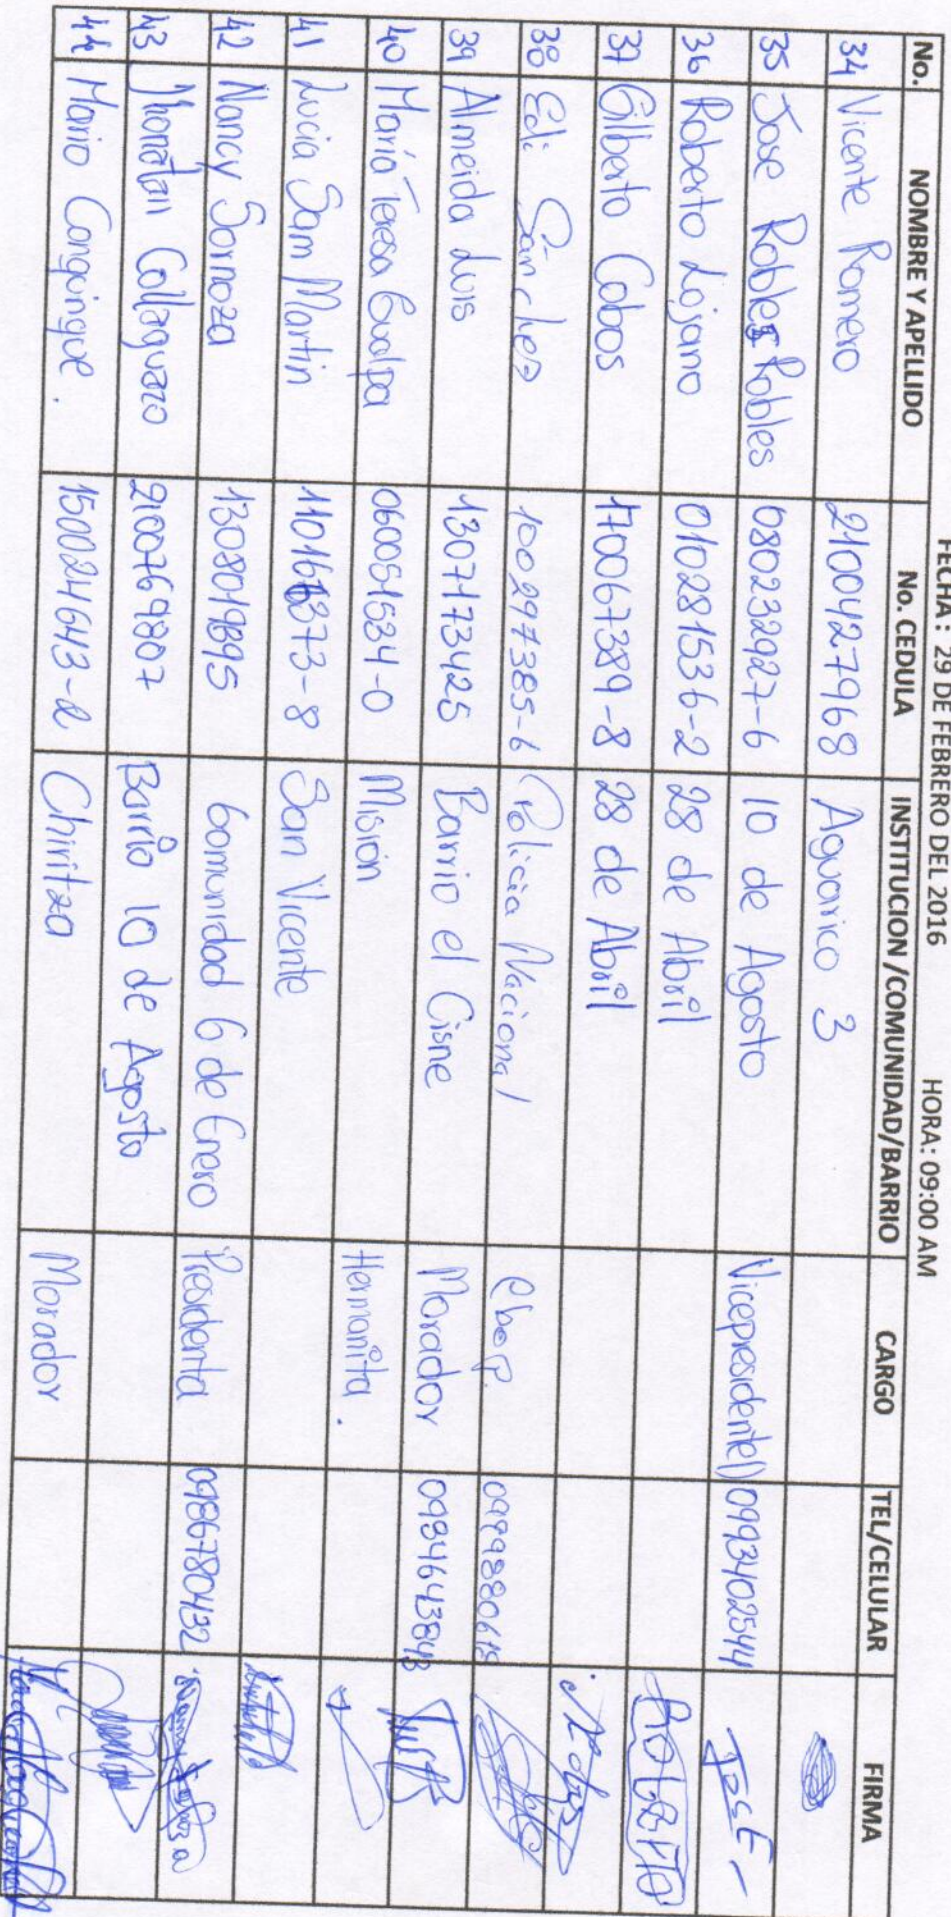 FECHA: 29 DE FEBRERO DEL 2016 HORA: 09:00 AM
No. NOMBRE Y APELLIDO No. CEDULA INSTITUCION /COMUNIDAD/BARRIO CARGO TEL/CELULAR FIRMA
34 Vicente Romero 2100427968 Aguarico 3
35 Jose Robles Robles 080232927-6 10 de Agosto Vicepresidente() 0993402544 JosE
36 Roberto Lojano 010281536-2 28 de Abril RobErTo
37 Gilberto Cobos 170067389-8 28 de Abril
38 Edi Sánchez 100297385-6 Policía Nacional Cbop.
39 Almeida Luis 1307173425 Barrio el Cisne Morador
40 María Teresa Gualpa 060051534-0 Mision Hermanita.
41 Lucia Sam Martin San Vicente
42 Nancy Sornoza 1308019895 Comunidad 6 de Enero Presidenta 0986780432
43 Jhonatan Collaguazo 2100769807 Barrio 10 de Agosto
44 Mario Congingue. 150024643-2 Chiritza Morador